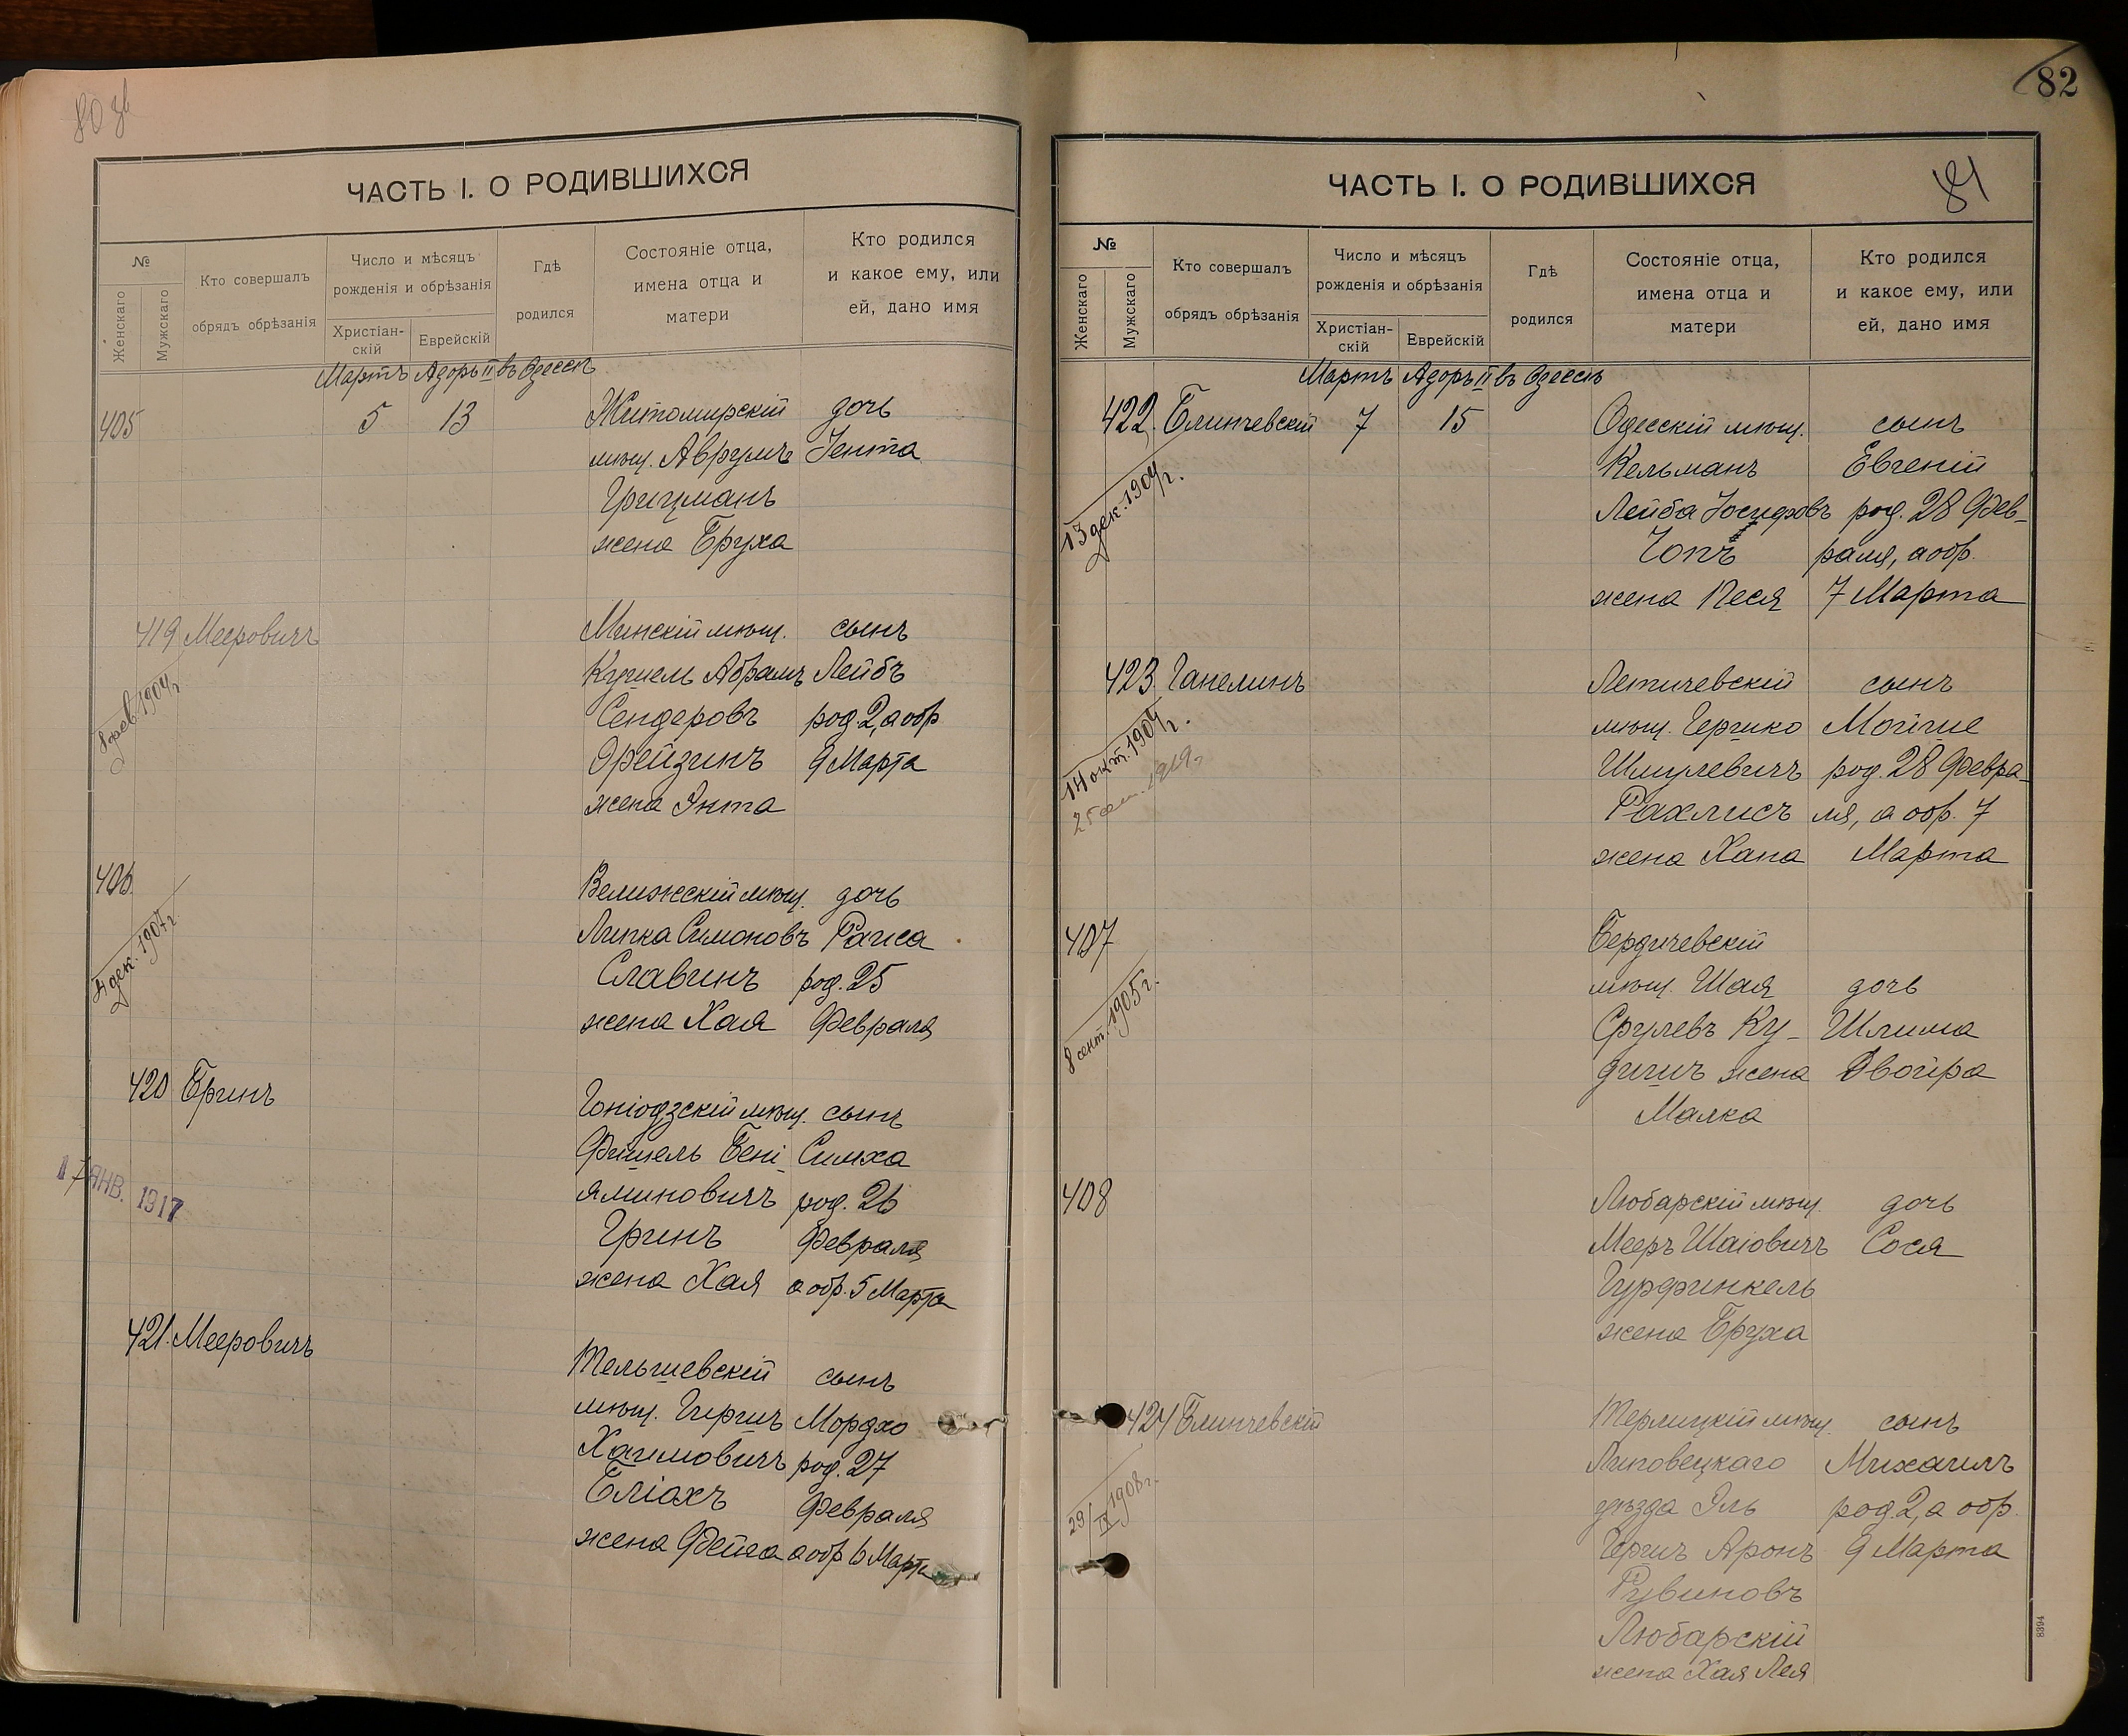 ЧАСТЬ I. О РОДИВШИХСЯ
№
Женскаго
Мужскаго
Кто совершалъ
обрядъ обрѣзанія
Число и мѣсяцъ
рожденія и обрѣзанія
Христіан-
скій
Еврейскій
Гдѣ
родился
Состояніе отца,
имена отца и
матери
Кто родился
и какое ему, или
ей, дано имя
Мартъ Адоръ II въ Одессѣ
405 5 13 Житомирскій дочь
мѣщ. Аврумъ Іента
Грицманъ
жена Бруха
419 Мееровичъ Минскій мѣщ. сынъ
Кушель Абрамъ Лейбъ
Сендеровъ род. 2, а обр
Орейзинъ 9 Марта
жена Энта
406 Велижскій мѣщ. дочь
4 дек. 1907 г.
Липка Симоновъ Раиса
Славинъ род. 25
жена Хая Февраля
420 Гринъ Гоніодзскій мѣщ. сынъ
17 ЯНВ. 1917
Фишель Бені- Симха
яминовичъ род. 26
Гринъ Февраля
жена Хая а обр. 5 Марта
421. Мееровичъ Тельшевскій сынъ
мѣщ. Гиршъ Мордхо
Хаимовичъ род. 27
Бліохъ Февраля
жена Фейга а обр 6 Марта
82
ЧАСТЬ I. О РОДИВШИХСЯ
81
№
Женскаго
Мужскаго
Кто совершалъ
обрядъ обрѣзанія
Число и мѣсяцъ
рожденія и обрѣзанія
Христіан-
скій
Еврейскій
Гдѣ
родился
Состояніе отца,
имена отца и
матери
Кто родился
и какое ему, или
ей, дано имя
Мартъ Адоръ II въ Одессѣ
422. Блинчевскій 7 15 Одесскій мѣщ. сынъ
13 дек. 1904 г.
Кельманъ Евгеній
Лейба Іосифовъ род. 28 Фев-
Гопъ раля, а обр.
жена Песя 7 Марта
423. Ганелинъ Летичевскій сынъ
14 окт. 1904 г.
мѣщ. Гершко Мойше
Шмулевичъ род. 28 Февра-
Рахлисъ ля, а обр. 7
жена Хана Марта
407 Бердичевскій
8 сент. 1905 г.
мѣщ. Шая дочь
Срулевъ Ку- Шлима
дишъ жена Двойра
Малка
408 Любарскій мѣщ. дочь
Мееръ Шаіовичъ Сося
Гурфинкель
жена Бруха
424 Блинчевскій Терлицкій мѣщ. сынъ
29/IX 1908 г.
Липовецкаго Михаилъ
уѣзда Эль род. 2, а обр.
Гершъ Аронъ 9 Марта
Рувиновъ
Любарскій
жена Хая Лея
8394